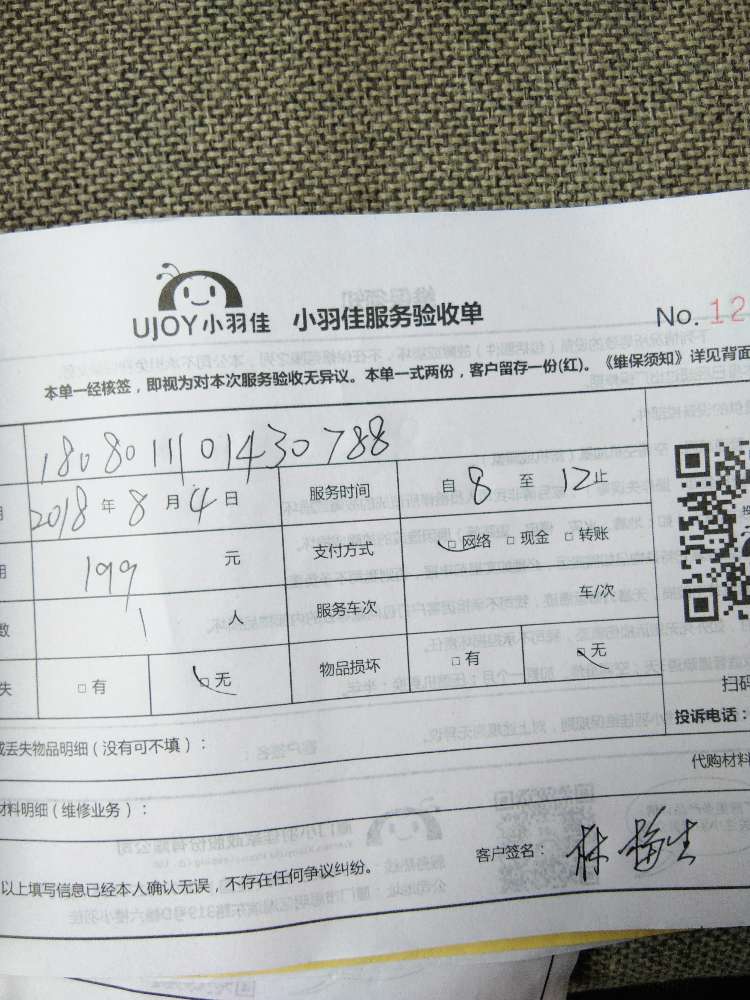 UJOY小羽佳 小羽佳服务验收单
No. 12
本单一经核签，即视为对本次服务验收无异议。本单一式两份，客户留存一份(红)。《维保须知》详见背面
180801101430788
2018年8月4日 服务时间 自8至12止
199元 支付方式 网络 现金 转账
数 1人 服务车次 车/次
失 有 无 物品损坏 有 无
扫码
投诉电话：
或丢失物品明细（没有可不填）：
代购材料
材料明细（维修业务）：
以上填写信息已经本人确认无误，不存在任何争议纠纷。
客户签名：林梅生